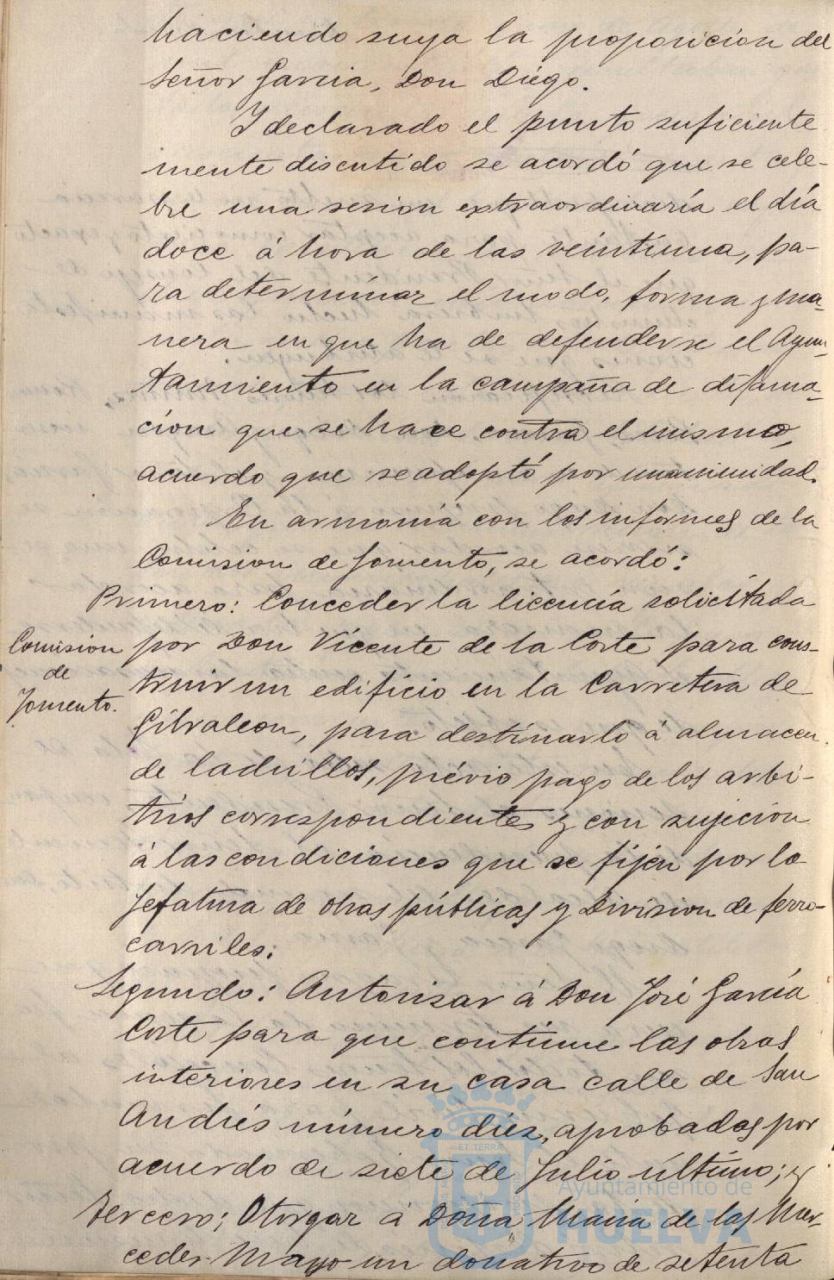 haciendo suya la proposicion del
Señor Garcia, Don Diégo.
I declarado el punto suficiente
mente discutido se acordó que se cele-
bre una sesion extraordinaría el día
doce á hora de las veintiuna, pa-
ra determinar el modo, forma y ma-
nera en que ha de defenderse el Ayun-
tamiento en la campaña de difama-
cion que se hace contra el mismo,
acuerdo que se adoptó por unanimidad.
En armonía con los informes de la
Comision de Fomento, se acordó:
Primero: Conceder la licencia solicitada
Comision
de
Fomento.
por Don Vicente de la Corte para cons-
truir un edificio en la Carretera de
Gibraleon, para destinarlo á almacen
de ladrillos, prévio pago de los arbi-
trios correspondientes y con sujecion
á las condiciones que se fijen por la
Jefatura de obras públicas y Division de ferro-
carriles:
Segundo: Autorizar á Don José García
Corte para que continue las obras
interiores en su casa calle de San
Andrés número diez, aprobadas por
acuerdo de siete de Julio último; y
Tercero; Otorgar á Doña Maria de las Mer-
cedes Mayo un donativo de setenta
ET TERRÆ
Ayuntamiento de
HUELVA